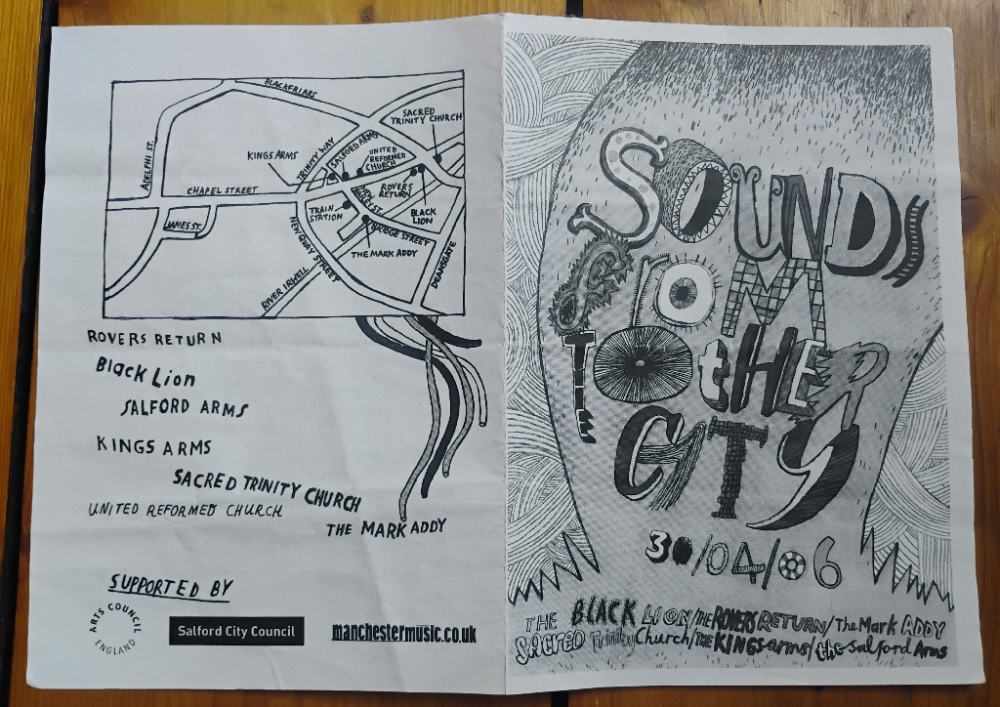 BLACKFRIARS
SACRED
TRINITY CHURCH
ADELPHI ST.
KINGS ARMS
TRINITY WAY
SALFORD ARMS
UNITED
REFORMED
CHURCH
CHAPEL STREET
ROVERS
RETURN
NEW
BAILEY ST.
TRAIN
STATION
BLACK
LION
JAMES ST.
BRIDGE STREET
THE MARK ADDY
NEW QUAY STREET
DEANSGATE
RIVER IRWELL
ROVERS RETURN
Black Lion
SALFORD ARMS
KINGS ARMS
SACRED TRINITY CHURCH
UNITED REFORMED CHURCH
THE MARK ADDY
SUPPORTED BY
ARTS COUNCIL
ENGLAND
Salford City Council
manchestermusic.co.uk
SOUNDS
FROM
THE OTHER
CITY
30/04/06
THE BLACK LION/THE ROVERS RETURN/The Mark ADDY
SACRED Trinity Church/THE KINGS arms/the Salford Arms